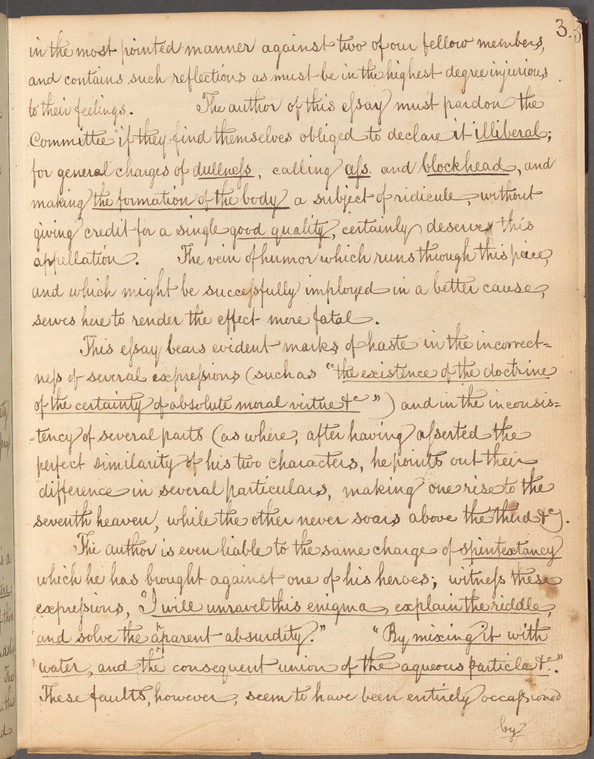 3.
in the most pointed manner against two of our fellow members,
and contains such reflections as must be in the highest degree injurious
to their feelings. The author of this eſsay must pardon the
Committee if they find themselves obliged to declare it illiberal;
for general charges of dullneſs, calling aſs. and blockhead, and
making the formation of the body a subject of ridicule, without
giving credit for a single good quality, certainly deserves this
appellation. The vein of humor which runs through this peice,
and which might be succeſsfully imployed in a better cause,
serves here to render the effect more fatal.
This eſsay bears evident marks of haste in the incorrect=
neſs of several expreſsions (such as "the existence of the doctrine
of the certainty of absolute moral virtue &c") and in the inconsis=
-tency of several parts (as where, after having aſserted the
perfect similarity of his two characters, he points out their
difference in several particulars, making one rise to the
seventh heaven, while the other never soars above the third &c).
The author is even liable to the same charge of
which he has brought against one of his heroes; witneſs these
expreſsions, "I will unravel this enigma, explain the riddle,
and solve the apparent absurdity." "By mixing it with
water, and the consequent union of the aqueous particles &c."
These faults, however, seem to have been entirely occaſsioned
by